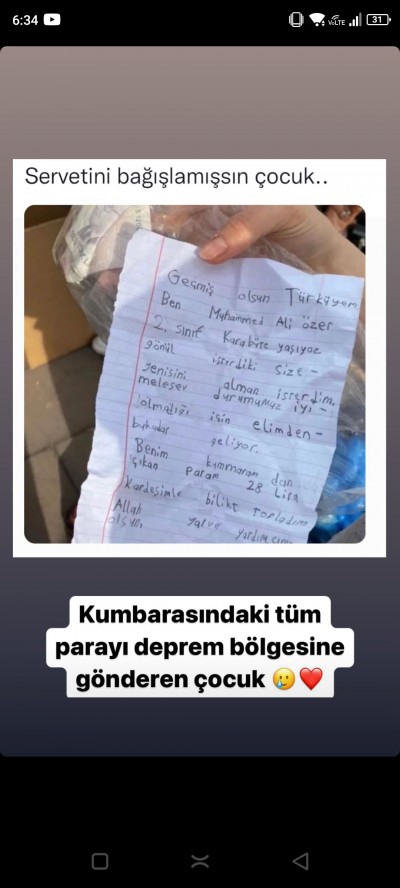 6:34
VoLTE
31
Servetini bağışlamışsın çocuk..
Geçmiş olsun Türkiyem
Ben Muhammed Ali özer
2. sınıf Karabüte yaşıyoz
gönül isterdiki size -
yenisini alman isterdim.
melesev durumumuz iyi -
olmadığı için elimden -
bukadar geliyor.
Benim kumnaram dan
çıkan param 28 Lira
Kardeşimle bilikt topladım
Allah yatve yardımcımı
olsun,
Kumbarasındaki tüm
parayı deprem bölgesine
gönderen çocuk 🥲❤️